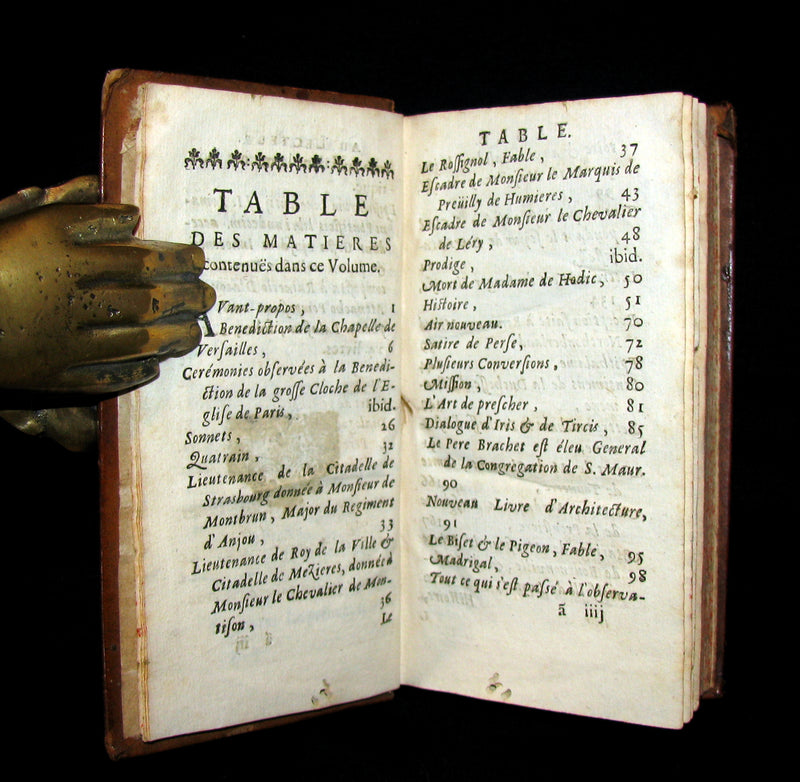 TABLE
DES MATIERES
contenuës dans ce Volume.
AVant-propos, 1
Benediction de la Chapelle de
Versailles, 6
Cerémonies observées à la Benedi-
ction de la grosse Cloche de l'E-
glise de Paris, ibid.
Sonnets, 26
Quatrain, 32
Lieutenance de la Citadelle de
Strasbourg donnée à Monsieur de
Montbrun, Major du Regiment
d'Anjou, 33
Lieutenance de Roy de la Ville &
Citadelle de Mezieres, donnée à
Monsieur le Chevalier de Mon-
tison, 36
Le
ã iij
TABLE.
Le Rossignol, Fable, 37
Escadre de Monsieur le Marquis de
Preüilly de Humieres, 43
Escadre de Monsieur le Chevalier
de Léry, 48
Prodige, ibid.
Mort de Madame de Hodic, 50
Histoire, 51
Air nouveau. 70
Satire de Perse, 72
Plusieurs Conversions, 78
Mission, 80
L'Art de prescher, 81
Dialogue d'Iris & de Tircis, 85
Le Pere Brachet est éleu General
de la Congrégation de S. Maur.
90
Nouveau Livre d'Architecture,
91
Le Biset & le Pigeon, Fable, 95
Madrigal, 98
Tout ce qui s'est passé à l'observa-
ã iiij